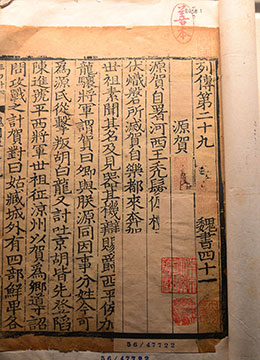 善本
列傳第二十九 魏書四十一
源賀
源賀自署河西王禿髮傉檀
伏熾磐所滅賀自樂都來奔賀
世祖素聞其名及見器其機辯賜爵西平侯加
龍驤將軍謂賀曰卿與朕源同因事分姓今可
為源氏從擊叛胡白龍又討吐京胡皆先登陷
陳進號平西將軍世祖征涼州以賀為鄉導詔
問攻戰之計賀對曰姑臧城外有四部鮮卑各
56/47722
56/47722